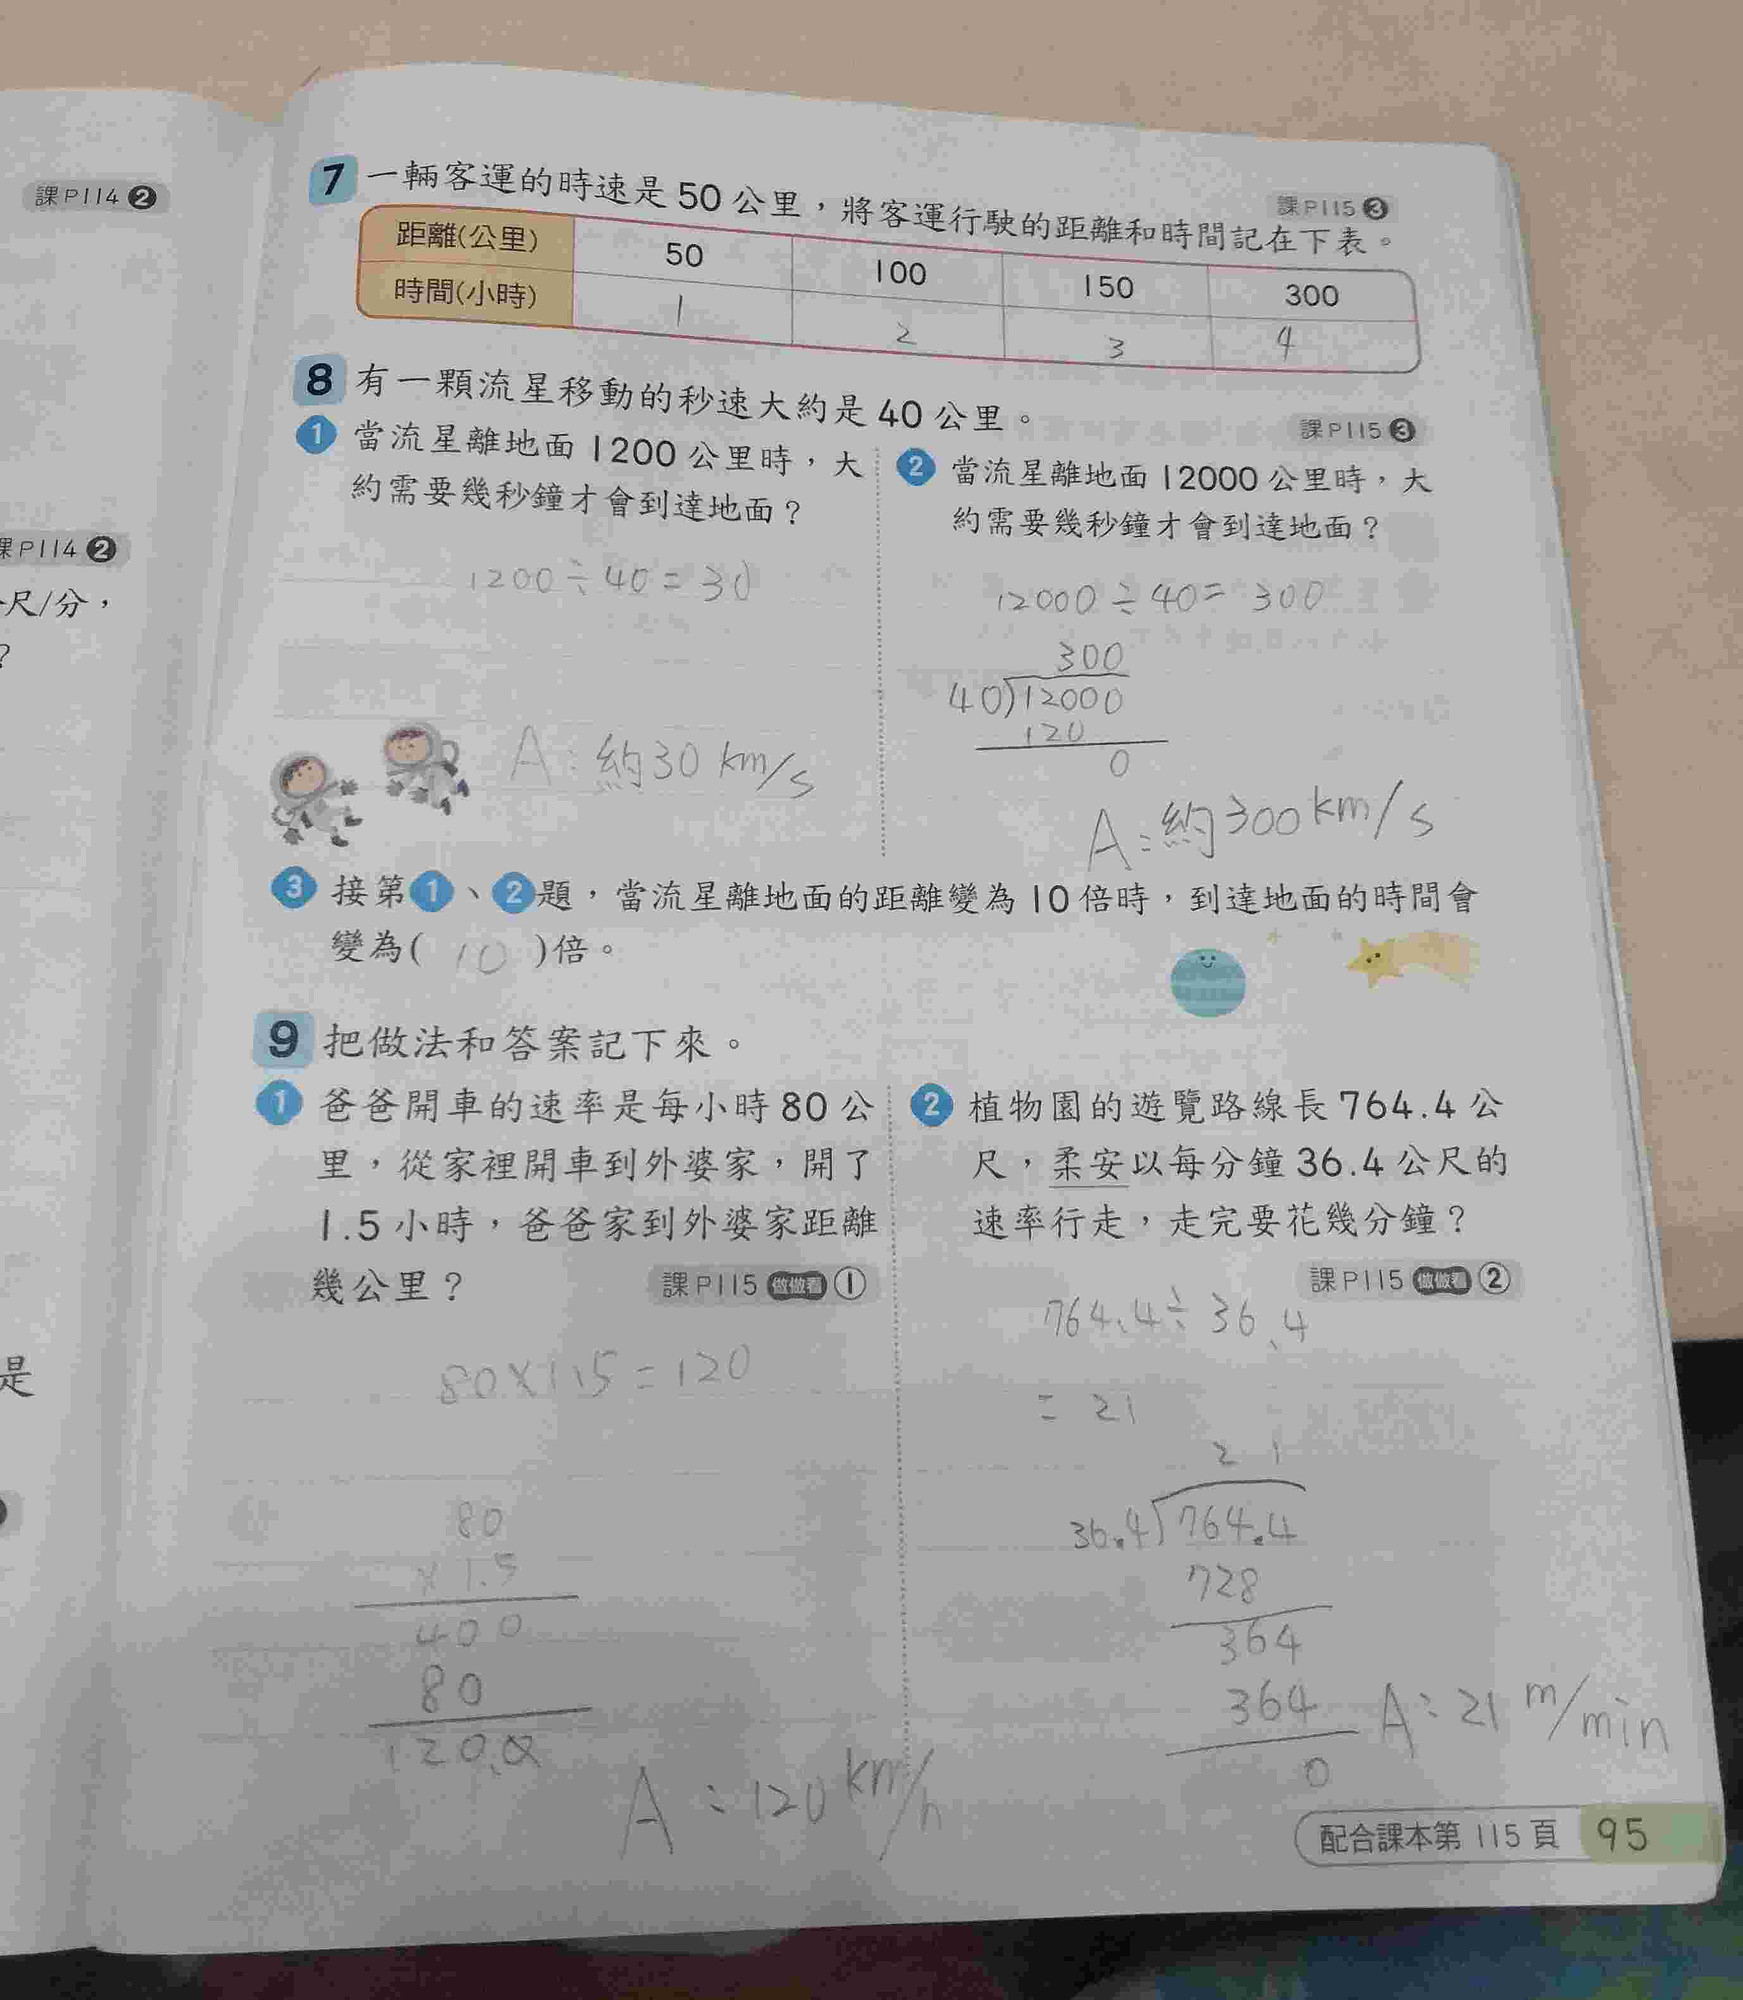 課P114❷
課P114❷
尺/分，
？
是
7 一輛客運的時速是50公里，將客運行駛的距離和時間記在下表。
課P115❸
距離(公里) 50 100 150 300
時間(小時) 1 2 3 4
8 有一顆流星移動的秒速大約是40公里。
課P115❸
1 當流星離地面1200公里時，大
約需要幾秒鐘才會到達地面？
1200÷40=30
A:約30 km/s
2 當流星離地面12000公里時，大
約需要幾秒鐘才會到達地面？
12000÷40=300
300
40)12000
120
0
A:約300km/s
3 接第1、2題，當流星離地面的距離變為10倍時，到達地面的時間會
變為( 10 )倍。
9 把做法和答案記下來。
1 爸爸開車的速率是每小時80公
里，從家裡開車到外婆家，開了
1.5小時，爸爸家到外婆家距離
幾公里？
課P115 做做看 ①
80×1.5=120
80
×1.5
400
80
120.0
A:120km/h
2 植物園的遊覽路線長764.4公
尺，柔安以每分鐘36.4公尺的
速率行走，走完要花幾分鐘？
課P115 做做看 ②
764.4÷36.4
=21
21
36.4)764.4
728
364
364
0
A:21m/min
配合課本第115頁 95